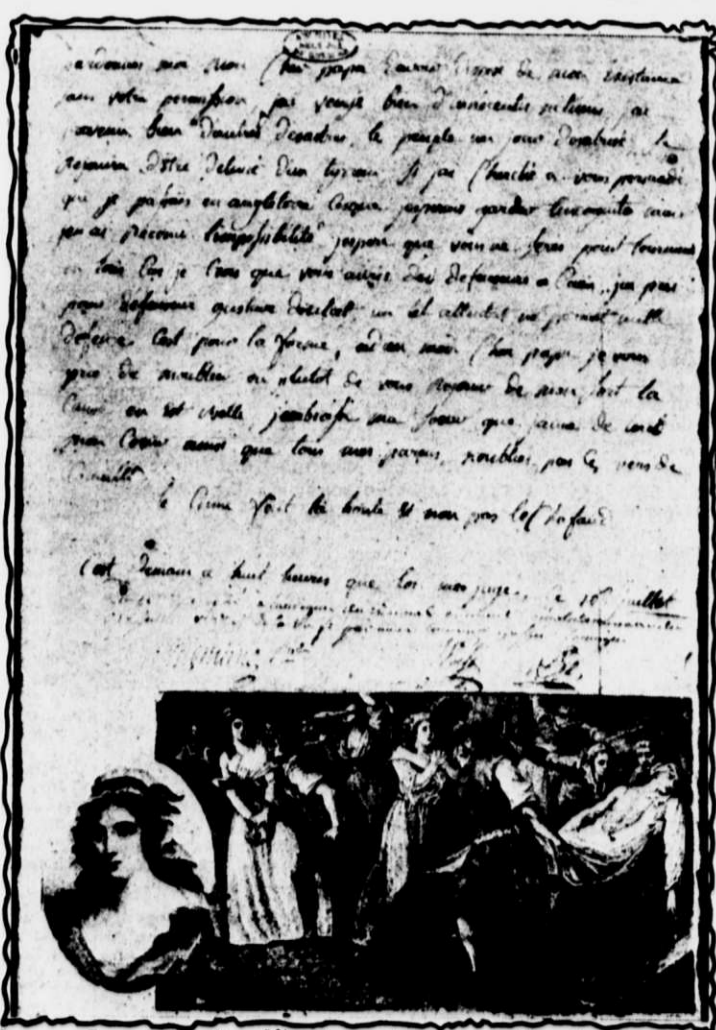 pardonnes moi mon Cher papa davoir dispose de mon existance
sans votre permission, jai vengé bien dinnocentes victimes, jai
prevenu bien dautres desastres, le peuple un jour desabusé, se
rejouira dêtre delivré dun tyran. Si jai Cherché a vous persuadé
que je passais en angleterre cesque jesperais garder lincognito mais
jen ai reconnu limpossibilité, jespere que vous ne seres point tourmenté
en tous Cas je Crois que vous auries des defenseurs a Caen, jai pris
pour defenseur gustave doulcet un tel attentat ne permet nulle
defense Cest pour la forme, adieu mon Cher papa je vous
prie de moublier ou plutot de vous rejouir de mon sort la
Cause en est belle, jembrasse ma soeur que jaime de tout
mon Coeur ainsi que tous mes parens, noublies pas Ce vers de
Corneille
le Crime fait la honte et non pas lechafaud
Cest demain a huit heures que lon me juge, ce 16 juillet